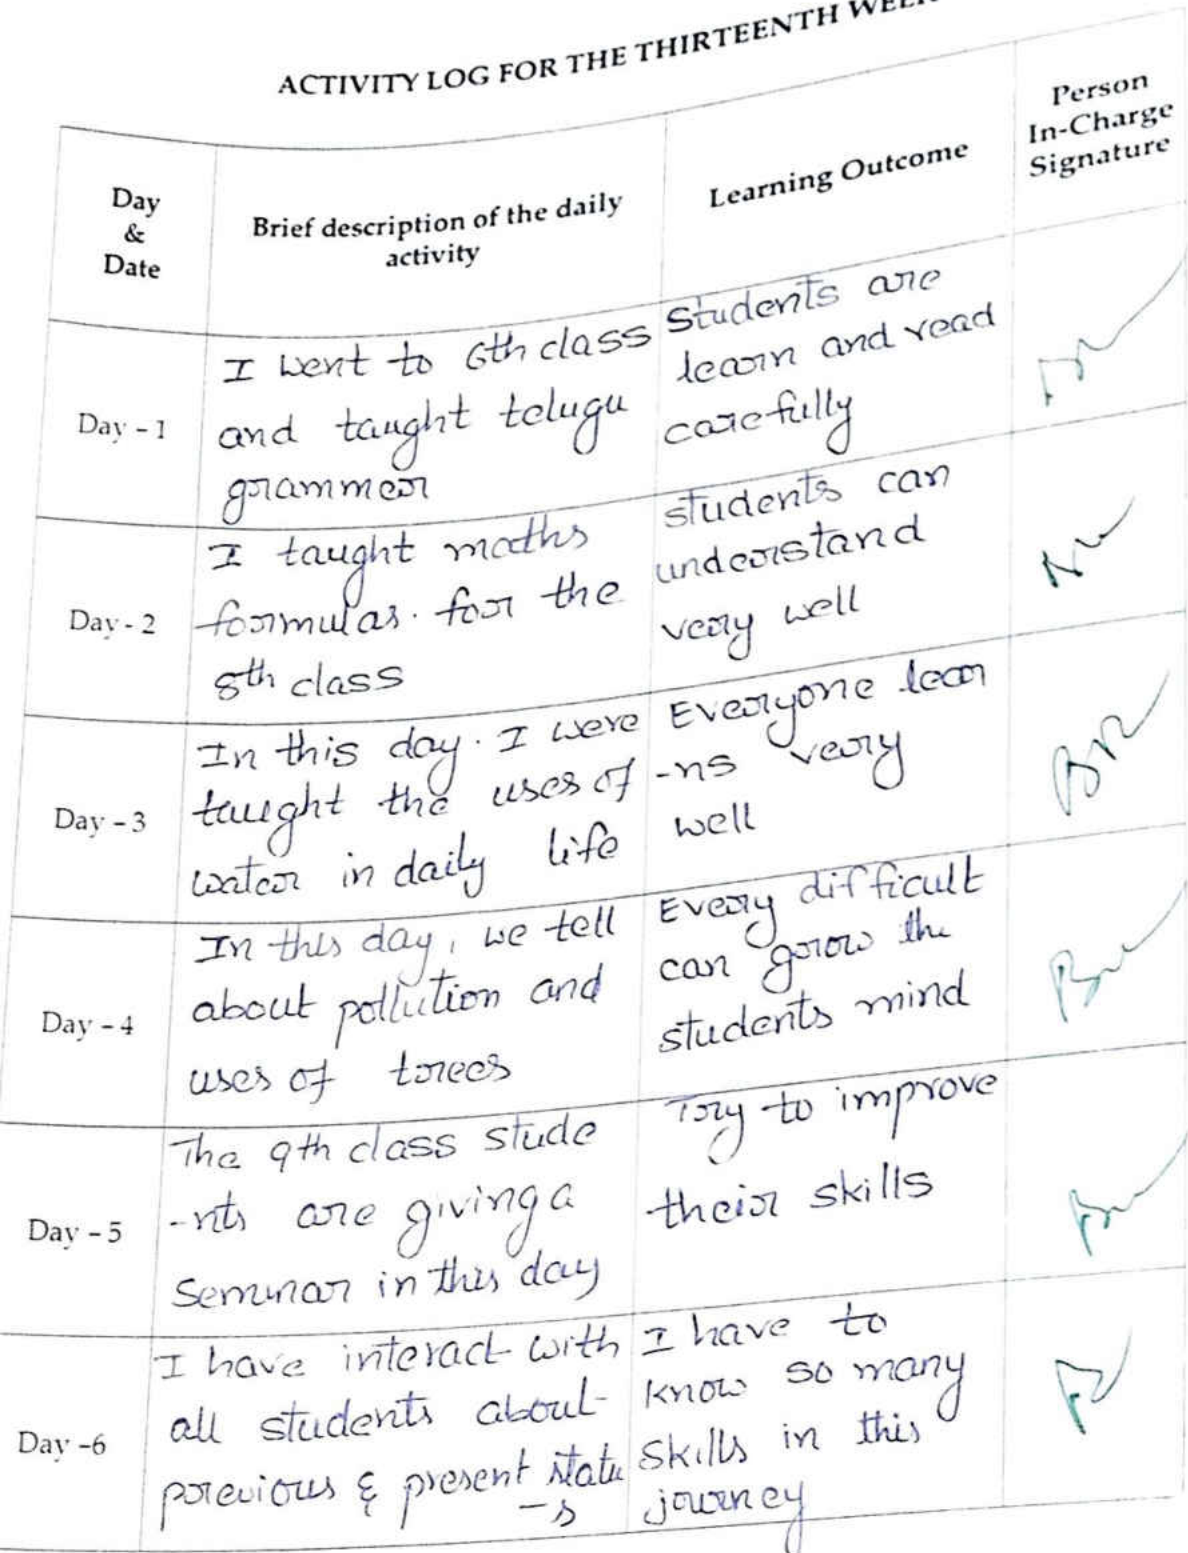 ACTIVITY LOG FOR THE THIRTEENTH
Day
&
Date
Brief description of the daily
activity
Learning Outcome
Person
In-Charge
Signature
Day - 1
I went to 6th class
and taught telugu
grammer
Students are
learn and read
carefully
Day - 2
I taught maths
formulas. for the
8th class
students can
understand
very well
Day - 3
In this day. I were
taught the uses of
water in daily life
Everyone lear
-ns very
well
Day - 4
In this day, we tell
about pollution and
uses of trees
Every difficult
can grow the
students mind
Day - 5
The 9th class stude
-nts are giving a
Seminar in this day
Try to improve
their skills
Day -6
I have interact with
all students about
previous & present statu
-s
I have to
know so many
skills in this
journey